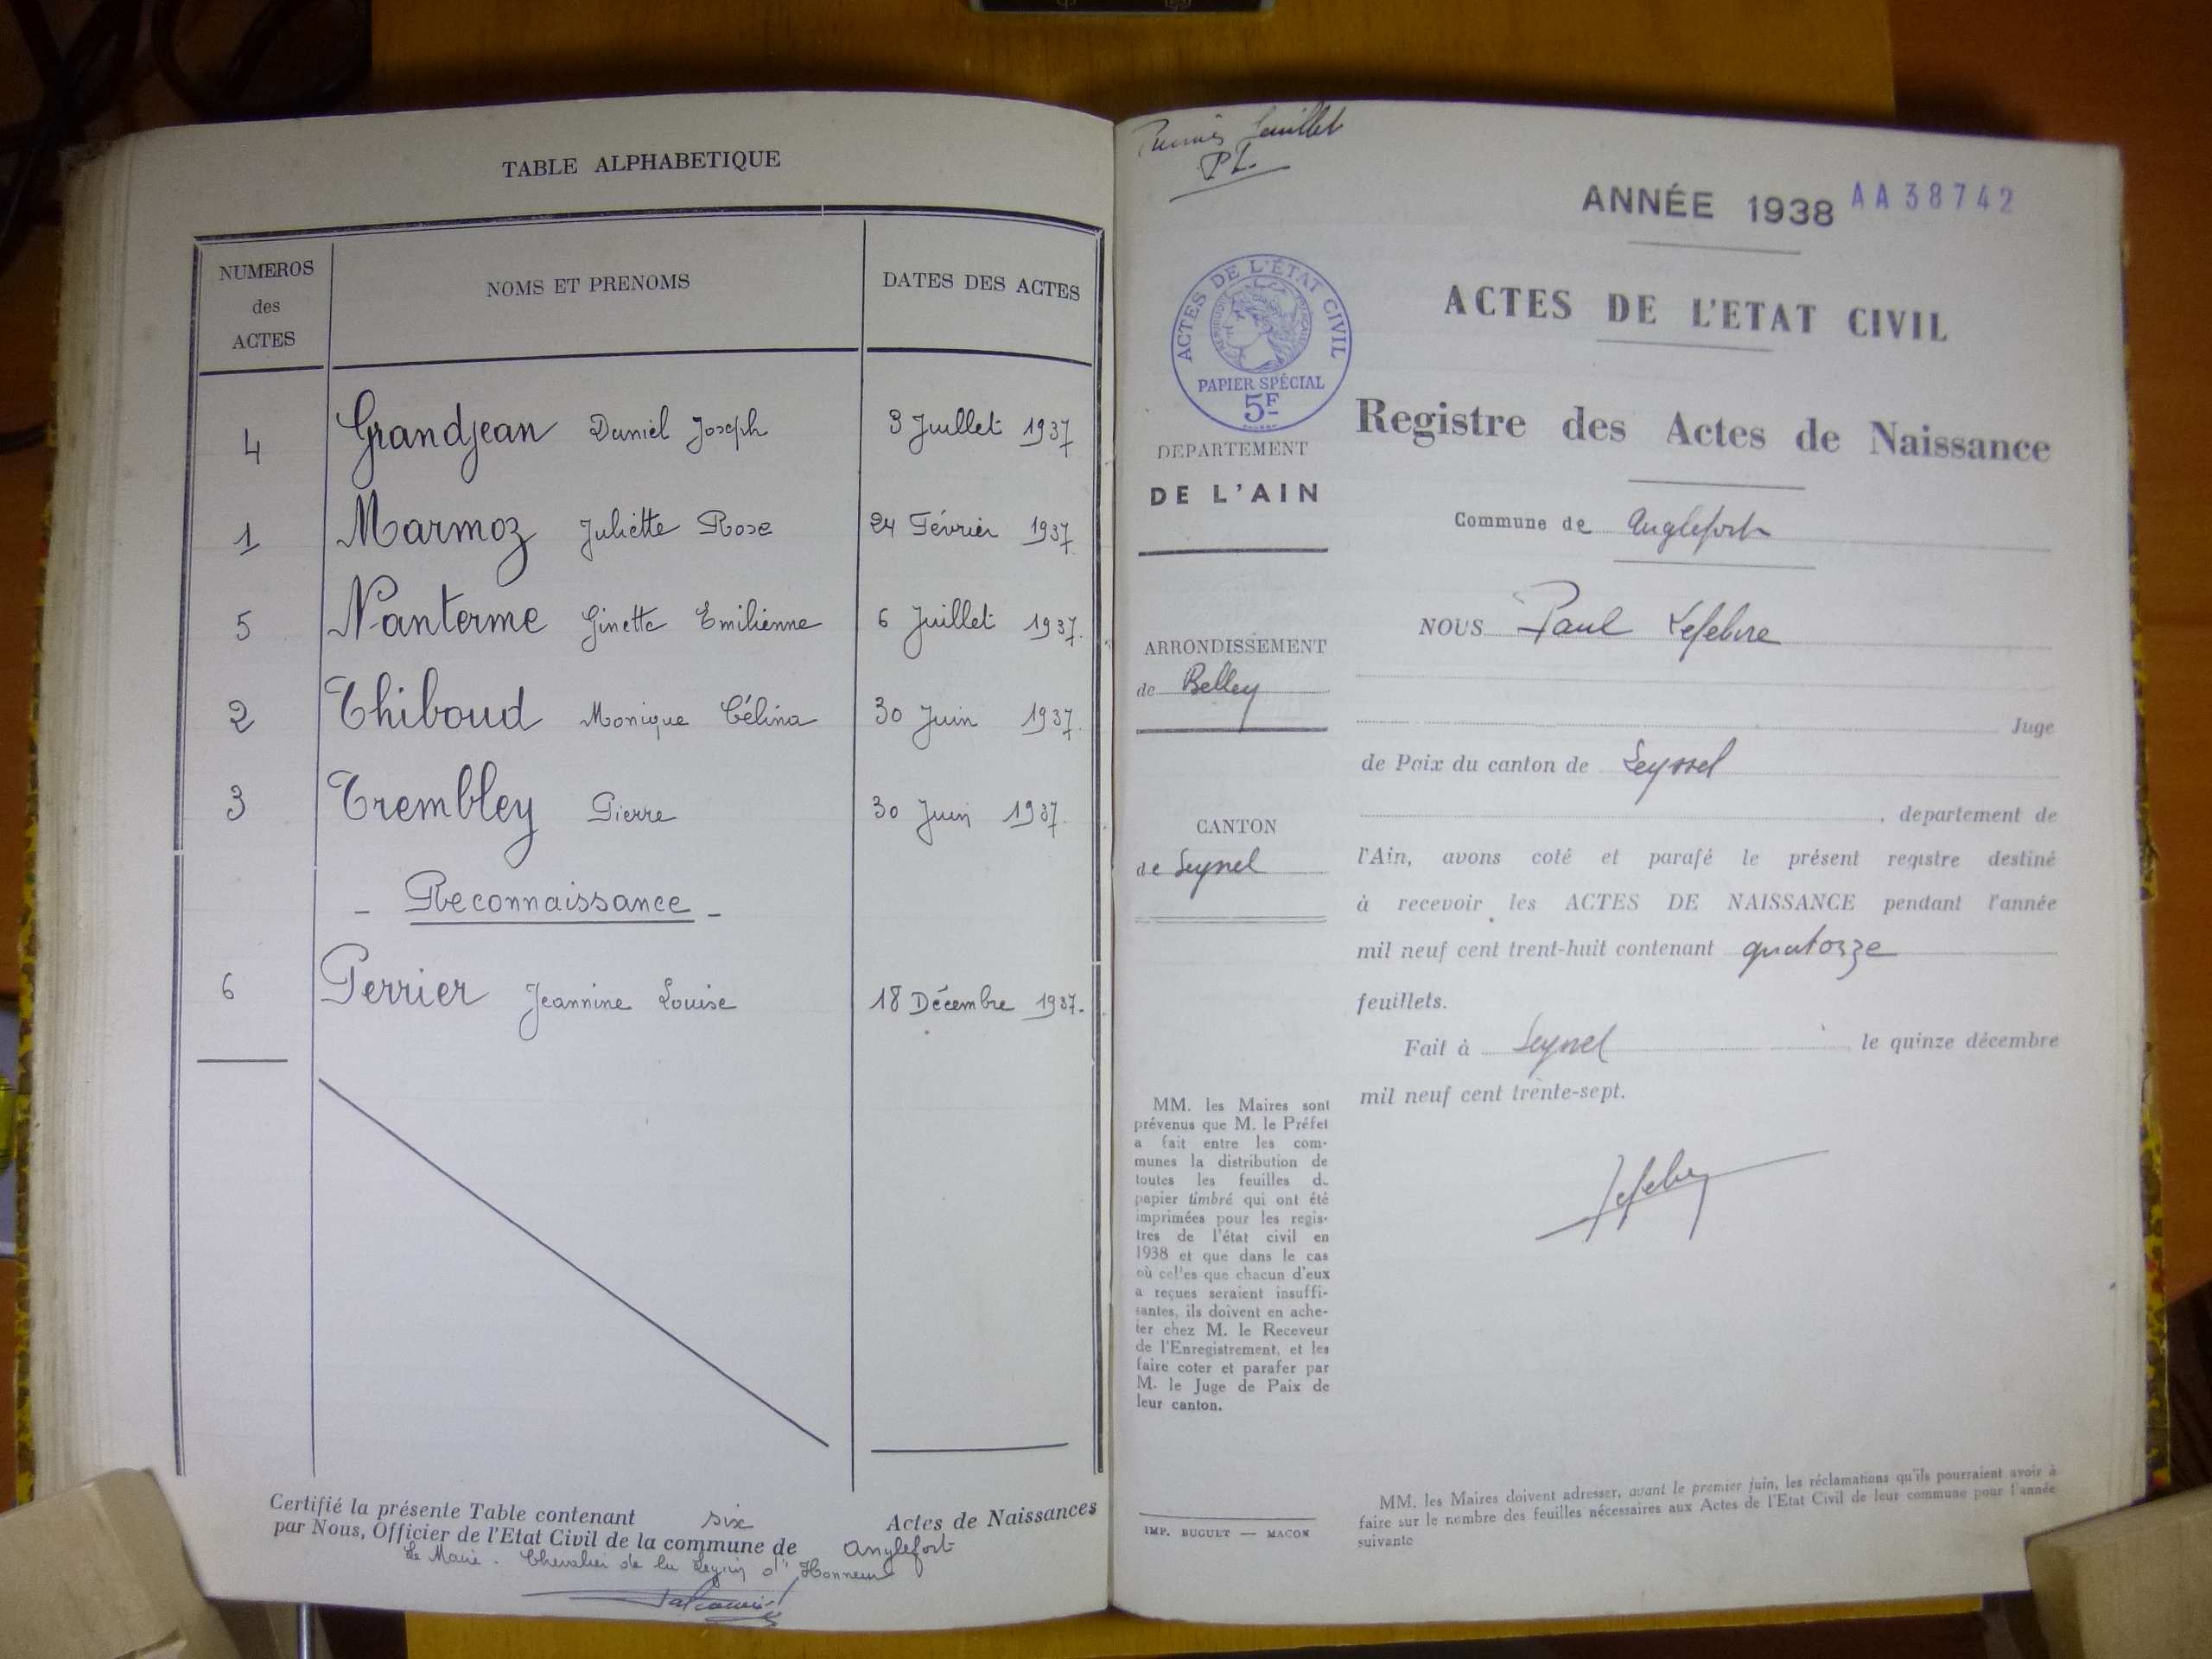 TABLE ALPHABETIQUE
NUMEROS des ACTES
NOMS ET PRENOMS
DATES DES ACTES
4 Grandjean Daniel Joseph 3 Juillet 1937
1 Marmoz Juliette Rose 24 Février 1937
5 Nanterme Ginette Emilienne 6 Juillet 1937.
2 Thiboud Monique Célina 30 Juin 1937.
3 Trembley Pierre 30 Juin 1937.
- Reconnaissance -
6 Perrier Jeannine Louise 18 Décembre 1937.
Certifié la présente Table contenant six Actes de Naissances
par Nous, Officier de l'Etat Civil de la commune de Anglefort
Le Maire - Chevalier de la Légion d'Honneur
Premier feuillet
PL.
ANNÉE 1938 AA38742
ACTES DE L'ÉTAT CIVIL
RÉPUBLIQUE FRANÇAISE
PAPIER SPÉCIAL
5F
ACTES DE L'ETAT CIVIL
Registre des Actes de Naissance
DEPARTEMENT
DE L'AIN
Commune de Anglefort
ARRONDISSEMENT
de Belley
CANTON
de Seyssel
NOUS Paul Lefebvre
Juge
de Paix du canton de Seyssel
, departement de
l'Ain, avons coté et parafé le présent registre destiné
à recevoir les ACTES DE NAISSANCE pendant l'année
mil neuf cent trent-huit contenant quatorze
feuillets.
Fait à Seyssel le quinze décembre
mil neuf cent trente-sept.
Lefebvre
MM. les Maires sont
prévenus que M. le Préfet
a fait entre les com-
munes la distribution de
toutes les feuilles de
papier timbré qui ont été
imprimées pour les regis-
tres de l'état civil en
1938 et que dans le cas
où celles que chacun d'eux
a reçues seraient insuffi-
santes, ils doivent en ache-
ter chez M. le Receveur
de l'Enregistrement, et les
faire coter et parafer par
M. le Juge de Paix de
leur canton.
IMP. BUGUET — MACON
MM. les Maires doivent adresser, avant le premier juin, les réclamations qu'ils pourraient avoir à
faire sur le nombre des feuilles nécessaires aux Actes de l'Etat Civil de leur commune pour l'année
suivante